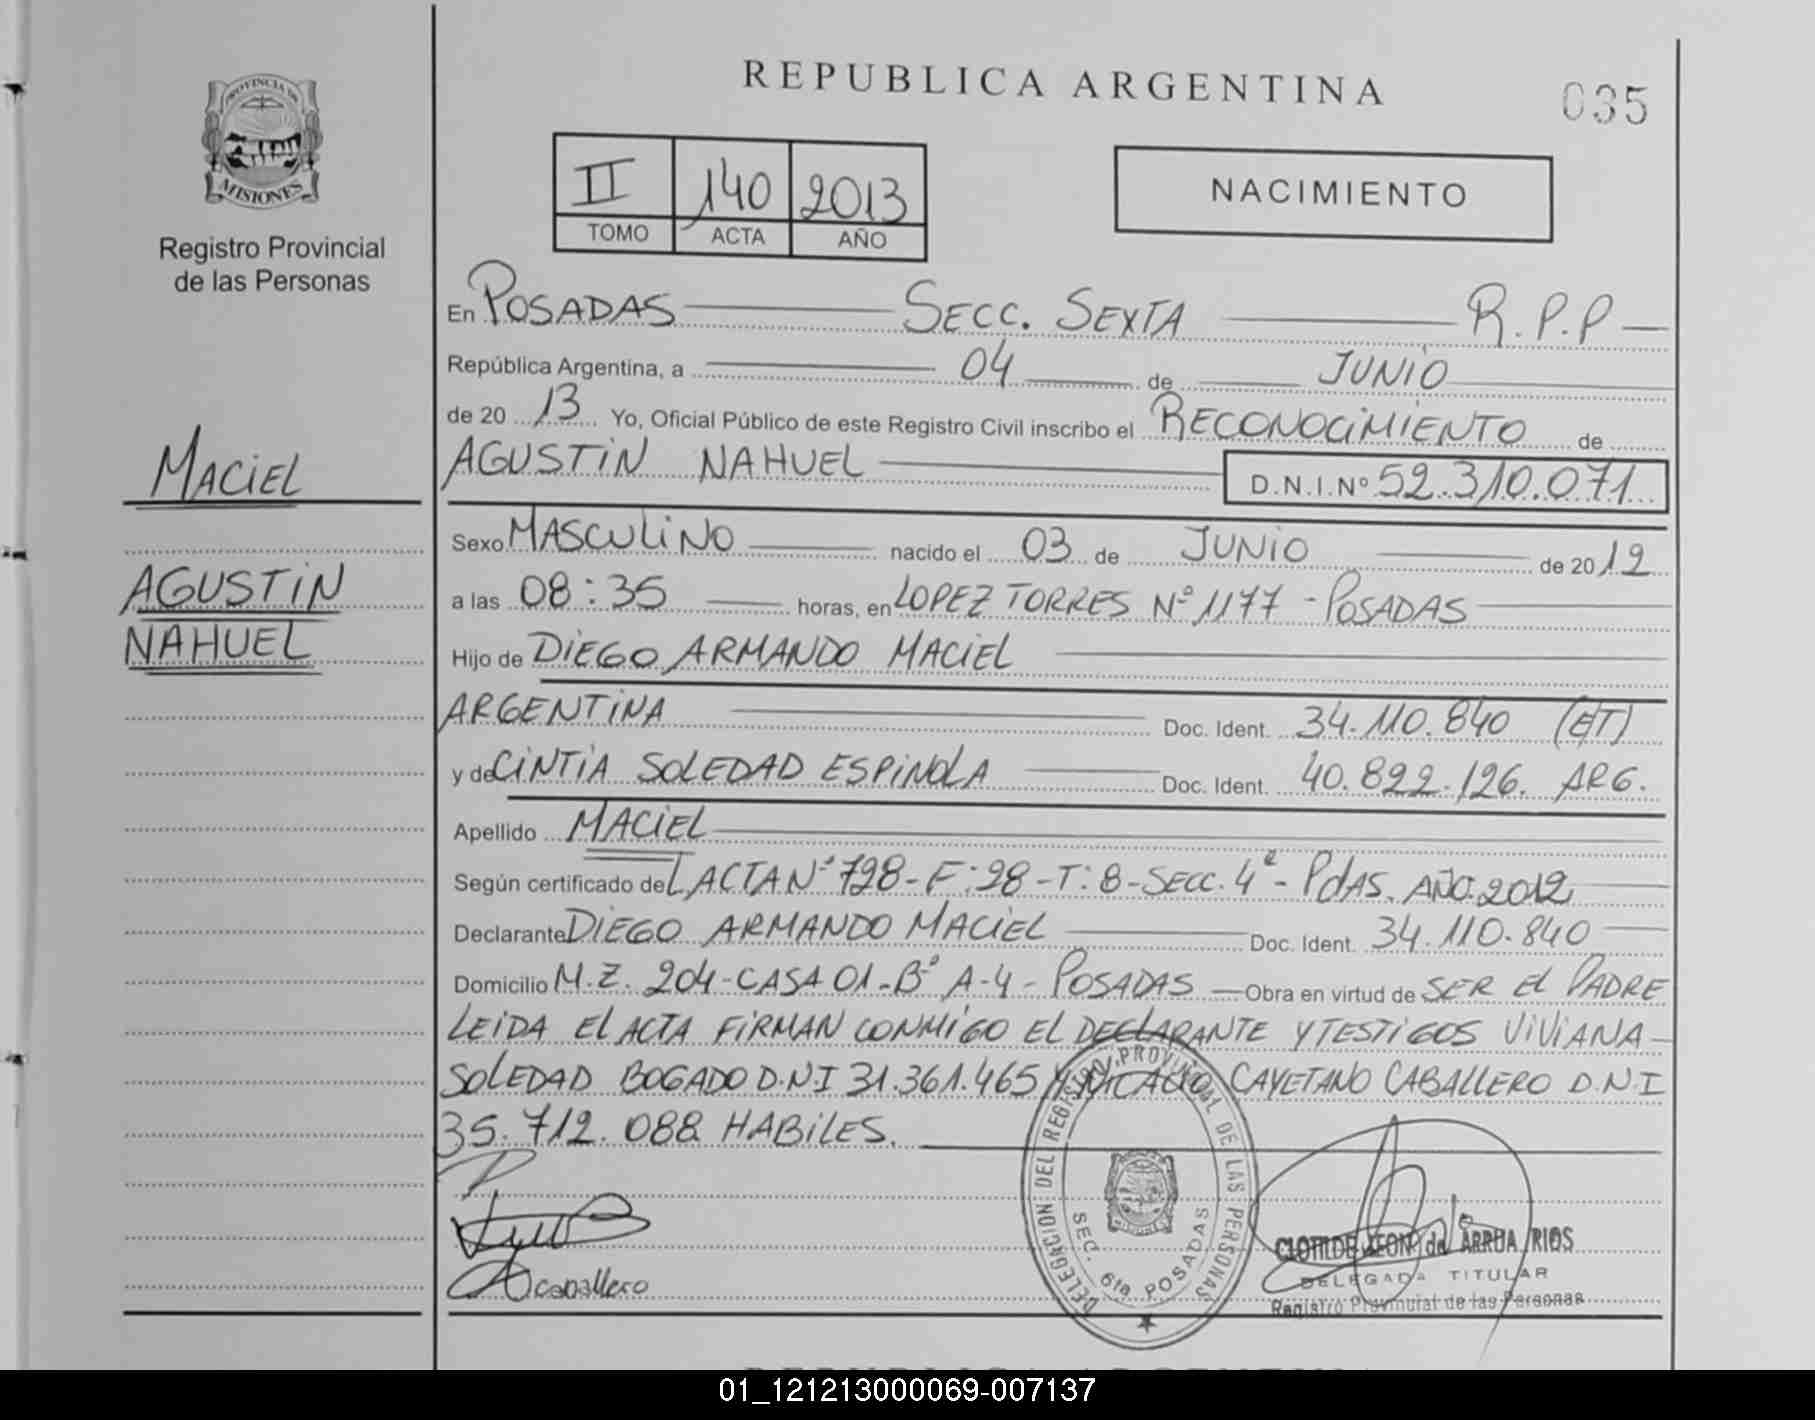 REPUBLICA ARGENTINA
035
PROVINCIA DE
MISIONES
Registro Provincial
de las Personas
II 140 2013
TOMO ACTA AÑO
NACIMIENTO
En POSADAS SECC. SEXTA R.P.P
República Argentina, a 04 de JUNIO
de 20 13 Yo, Oficial Público de este Registro Civil inscribo el RECONOCIMIENTO de
AGUSTIN NAHUEL D.N.I.Nº 52.310.071
MACIEL
AGUSTIN
NAHUEL
Sexo MASCULINO nacido el 03 de JUNIO de 20 12
a las 08:35 horas, en LOPEZ TORRES Nº 1177 - POSADAS
Hijo de DIEGO ARMANDO MACIEL
ARGENTINA Doc. Ident. 34.110.840 (E/T)
y de CINTIA SOLEDAD ESPINOLA Doc. Ident. 40.822.126. ARG.
Apellido MACIEL
Según certificado del ACTA Nº 798 - F:98 - T:8 - SECC. 4ª - PdAS. AÑO.2012
Declarante DIEGO ARMANDO MACIEL Doc. Ident. 34.110.840
Domicilio M.Z. 204 - CASA 01 - Bº A-4 - POSADAS Obra en virtud de SER El PADRE
LEIDA El ACTA FIRMAN CONMIGO EL DECLARANTE Y TESTIGOS VIVIANA
SOLEDAD BOGADO D.N.I 31.361.465 Y CAYETANO CABALLERO D.N.I
35.712.088 HABILES.
caballero
DELEGACION DEL REGISTRO PROVINCIAL DE LAS PERSONAS
SEC. 6ta POSADAS
CLOTILDE LEON de ARRUA RIOS
DELEGADA TITULAR
Registro Provincial de las Personas
01_121213000069-007137